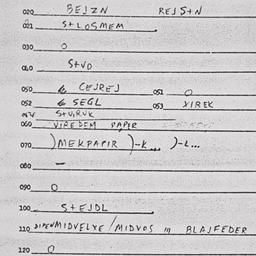 020 BEJZN REJS+N
021 S+LOSMEM
030 O
040 S+VO
050 CEJREJ 051 O
052 SEGL 053 XIREK
S+VIRVK
060 VIREDEM PAPER
070 )MEKPAFIR )-K... )-L...
080 —
090 O
100 S+EJDL
110 MIDVELXE/MIDVOS BLAJFEDER
120 O